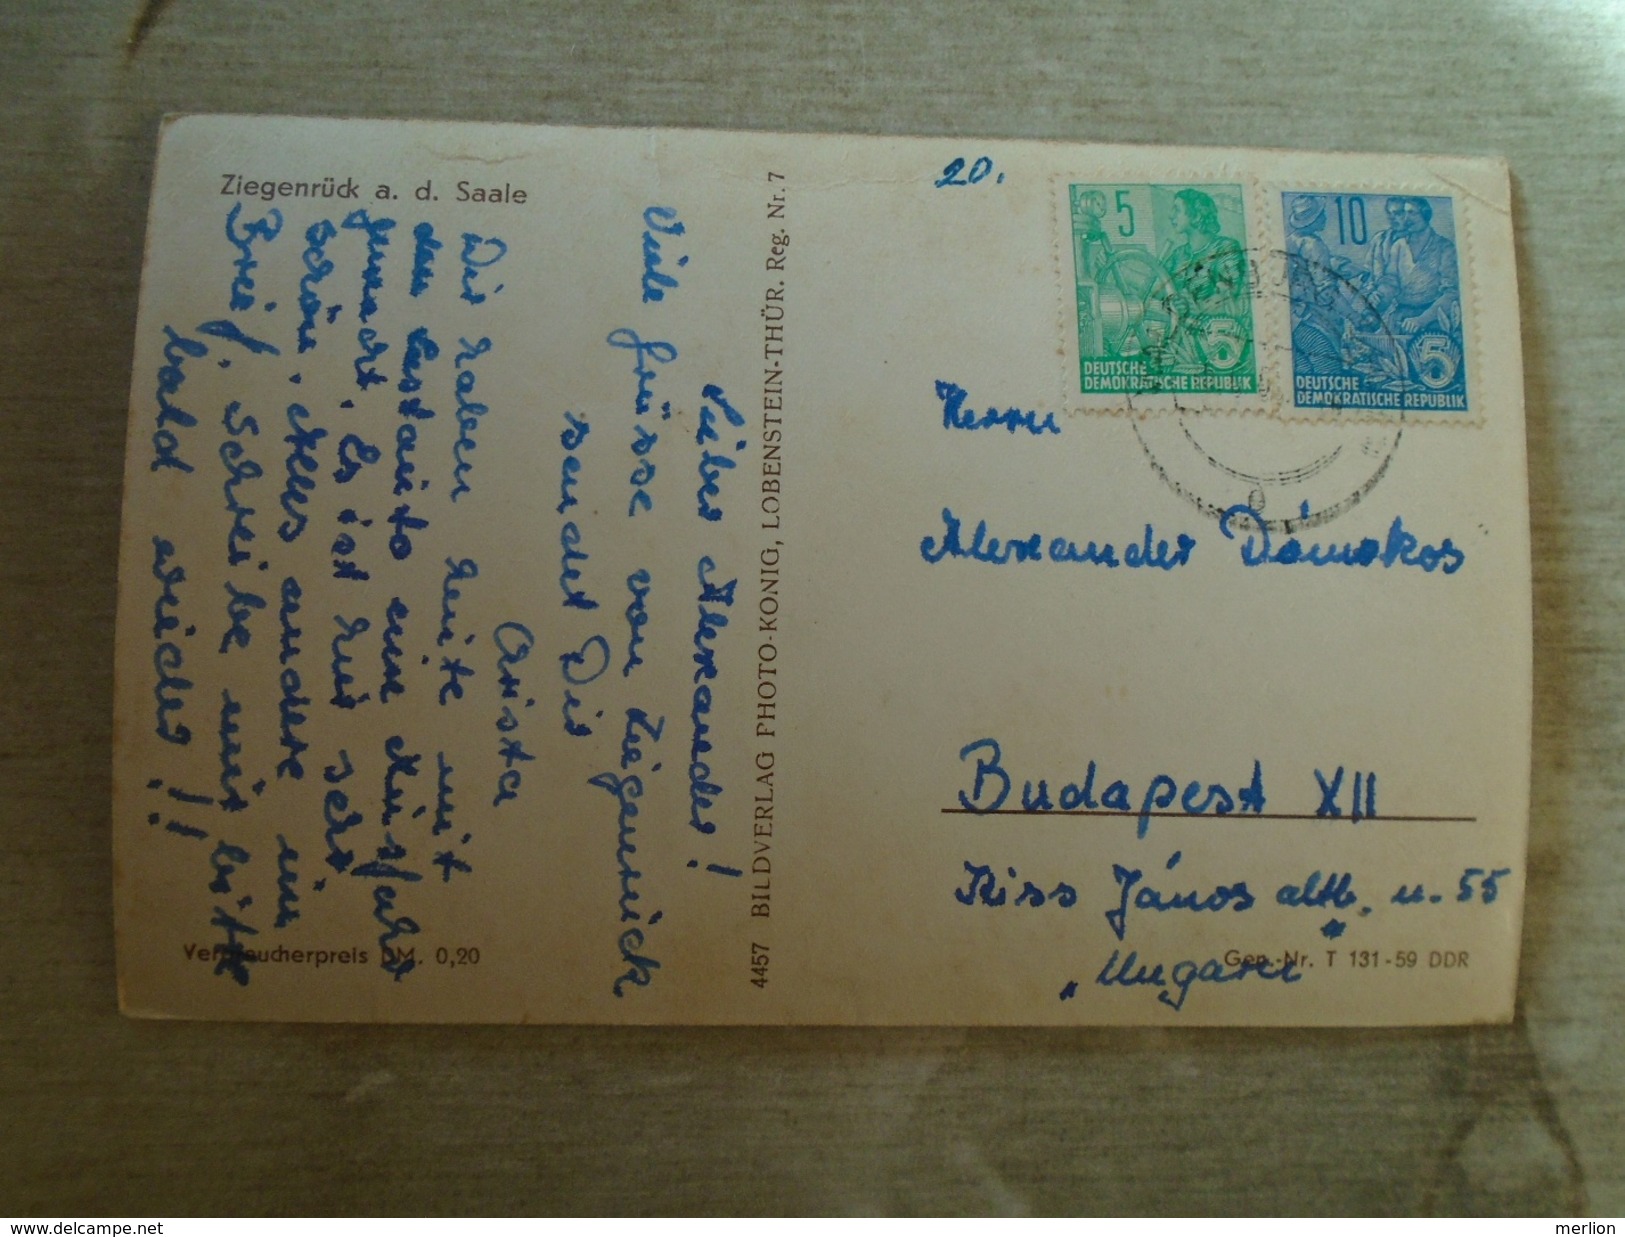 Ziegenrück a. d. Saale
Lieber Alexander!
Viele Grüsse von Ziegenrück
sendet Dir
Christa
Wir haben heute mit
den Lastauto eine
gemacht. Es ist hier sehr
schön. Alles andere im
Brief. Schreibe mir bitte
bald wieder!!
Verbraucherpreis DM. 0,20
4457 BILDVERLAG PHOTO-KÖNIG, LOBENSTEIN-THÜR. Reg. Nr. 7
20.
5
5
DEUTSCHE
DEMOKRATISCHE REPUBLIK
10
5
DEUTSCHE
DEMOKRATISCHE REPUBLIK
Herrn
Alexander Dómokos
Budapest XII
Kiss János altb. u. 55
"Ungarn"
Gen.-Nr. T 131-59 DDR
www.delcampe.net
merlion